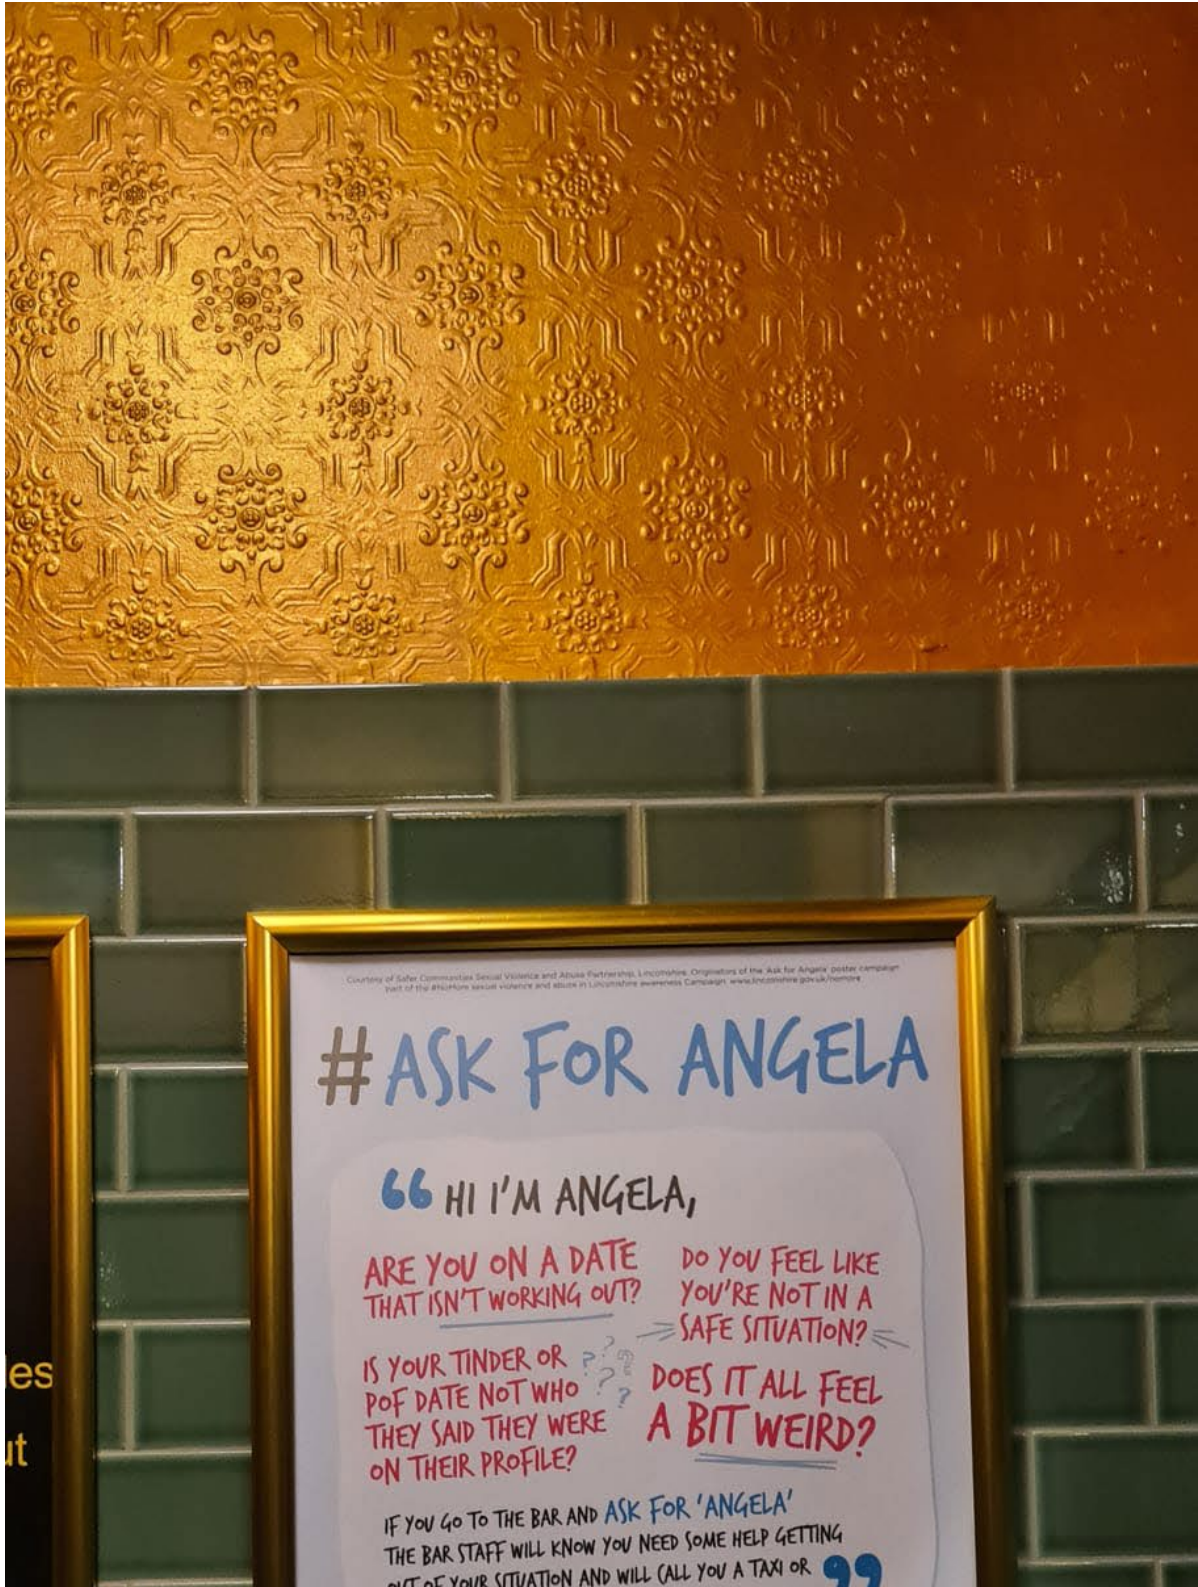 Courtesy of Safer Communities Sexual Violence and Abuse Partnership, Lincolnshire. Originators of the 'Ask for Angela' poster campaign
part of the #NoMore sexual violence and abuse in Lincolnshire awareness Campaign. www.lincolnshire.gov.uk/nomore
#ASK FOR ANGELA
“ HI I'M ANGELA,
ARE YOU ON A DATE
THAT ISN'T WORKING OUT?
DO YOU FEEL LIKE
YOU'RE NOT IN A
SAFE SITUATION?
IS YOUR TINDER OR
POF DATE NOT WHO
THEY SAID THEY WERE
ON THEIR PROFILE?
? ? ? ? ? ?
DOES IT ALL FEEL
A BIT WEIRD?
IF YOU GO TO THE BAR AND ASK FOR 'ANGELA'
THE BAR STAFF WILL KNOW YOU NEED SOME HELP GETTING
OUT OF YOUR SITUATION AND WILL CALL YOU A TAXI OR ”
les
ut